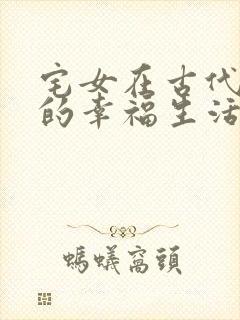 宅女在古代
的幸福生活
螞蟻窩頭